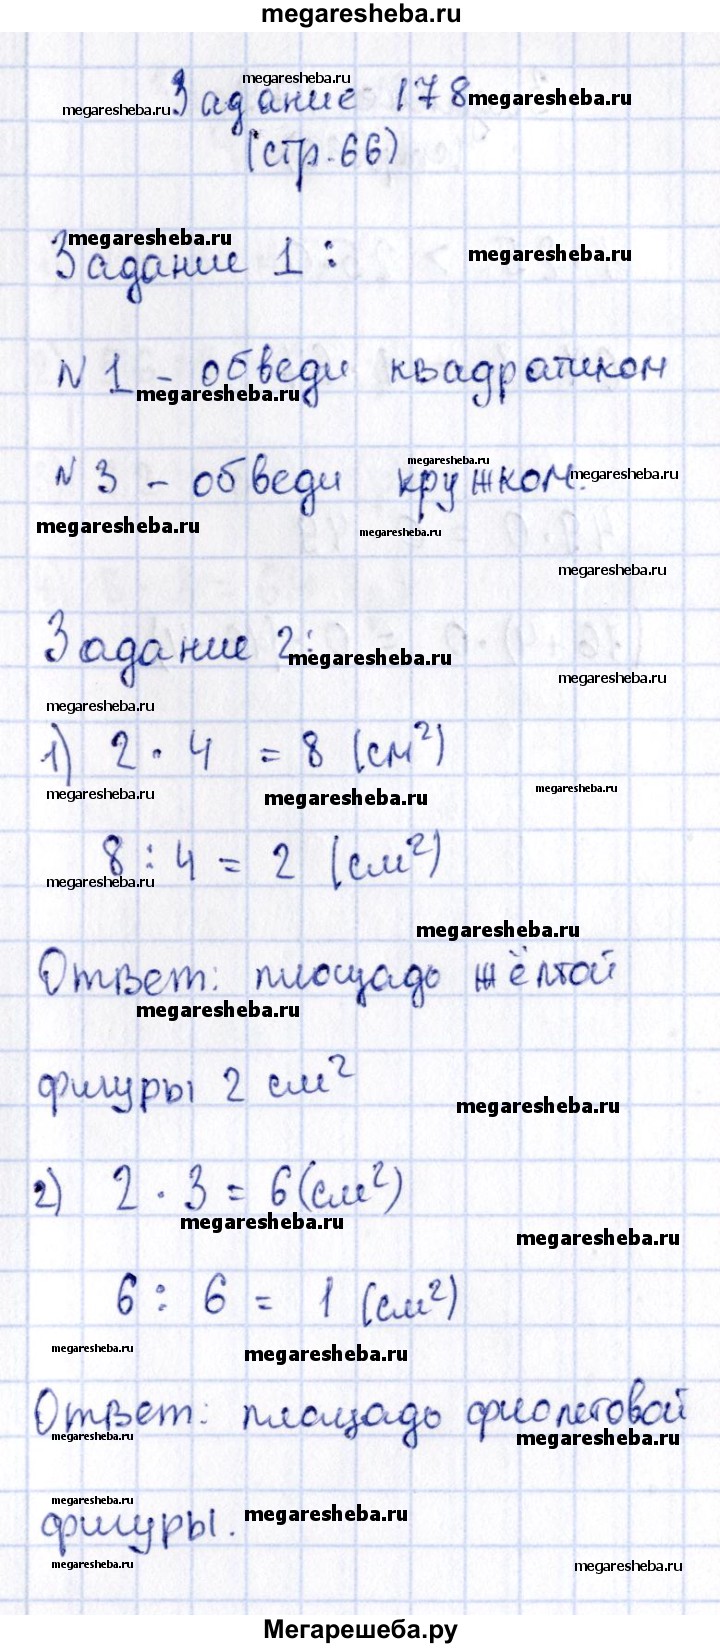 megaresheba.ru
megaresheba.ru
megaresheba.ru
Задание 178
megaresheba.ru
(стр.66)
megaresheba.ru
megaresheba.ru
Задание 1:
№1 - обведи квадратиком
megaresheba.ru
megaresheba.ru
megaresheba.ru
№3 - обведи кружком.
megaresheba.ru
megaresheba.ru
megaresheba.ru
Задание 2:
megaresheba.ru
megaresheba.ru
megaresheba.ru
1) 2 · 4 = 8 (см²)
megaresheba.ru
megaresheba.ru
megaresheba.ru
8 : 4 = 2 (см²)
megaresheba.ru
megaresheba.ru
Ответ: площадь жёлтой
megaresheba.ru
фигуры 2 см²
megaresheba.ru
2) 2 · 3 = 6 (см²)
megaresheba.ru
megaresheba.ru
6 : 6 = 1 (см²)
megaresheba.ru
megaresheba.ru
Ответ: площадь фиолетовой
megaresheba.ru
megaresheba.ru
megaresheba.ru
megaresheba.ru
фигуры.
megaresheba.ru
megaresheba.ru
Мегарешеба.ру